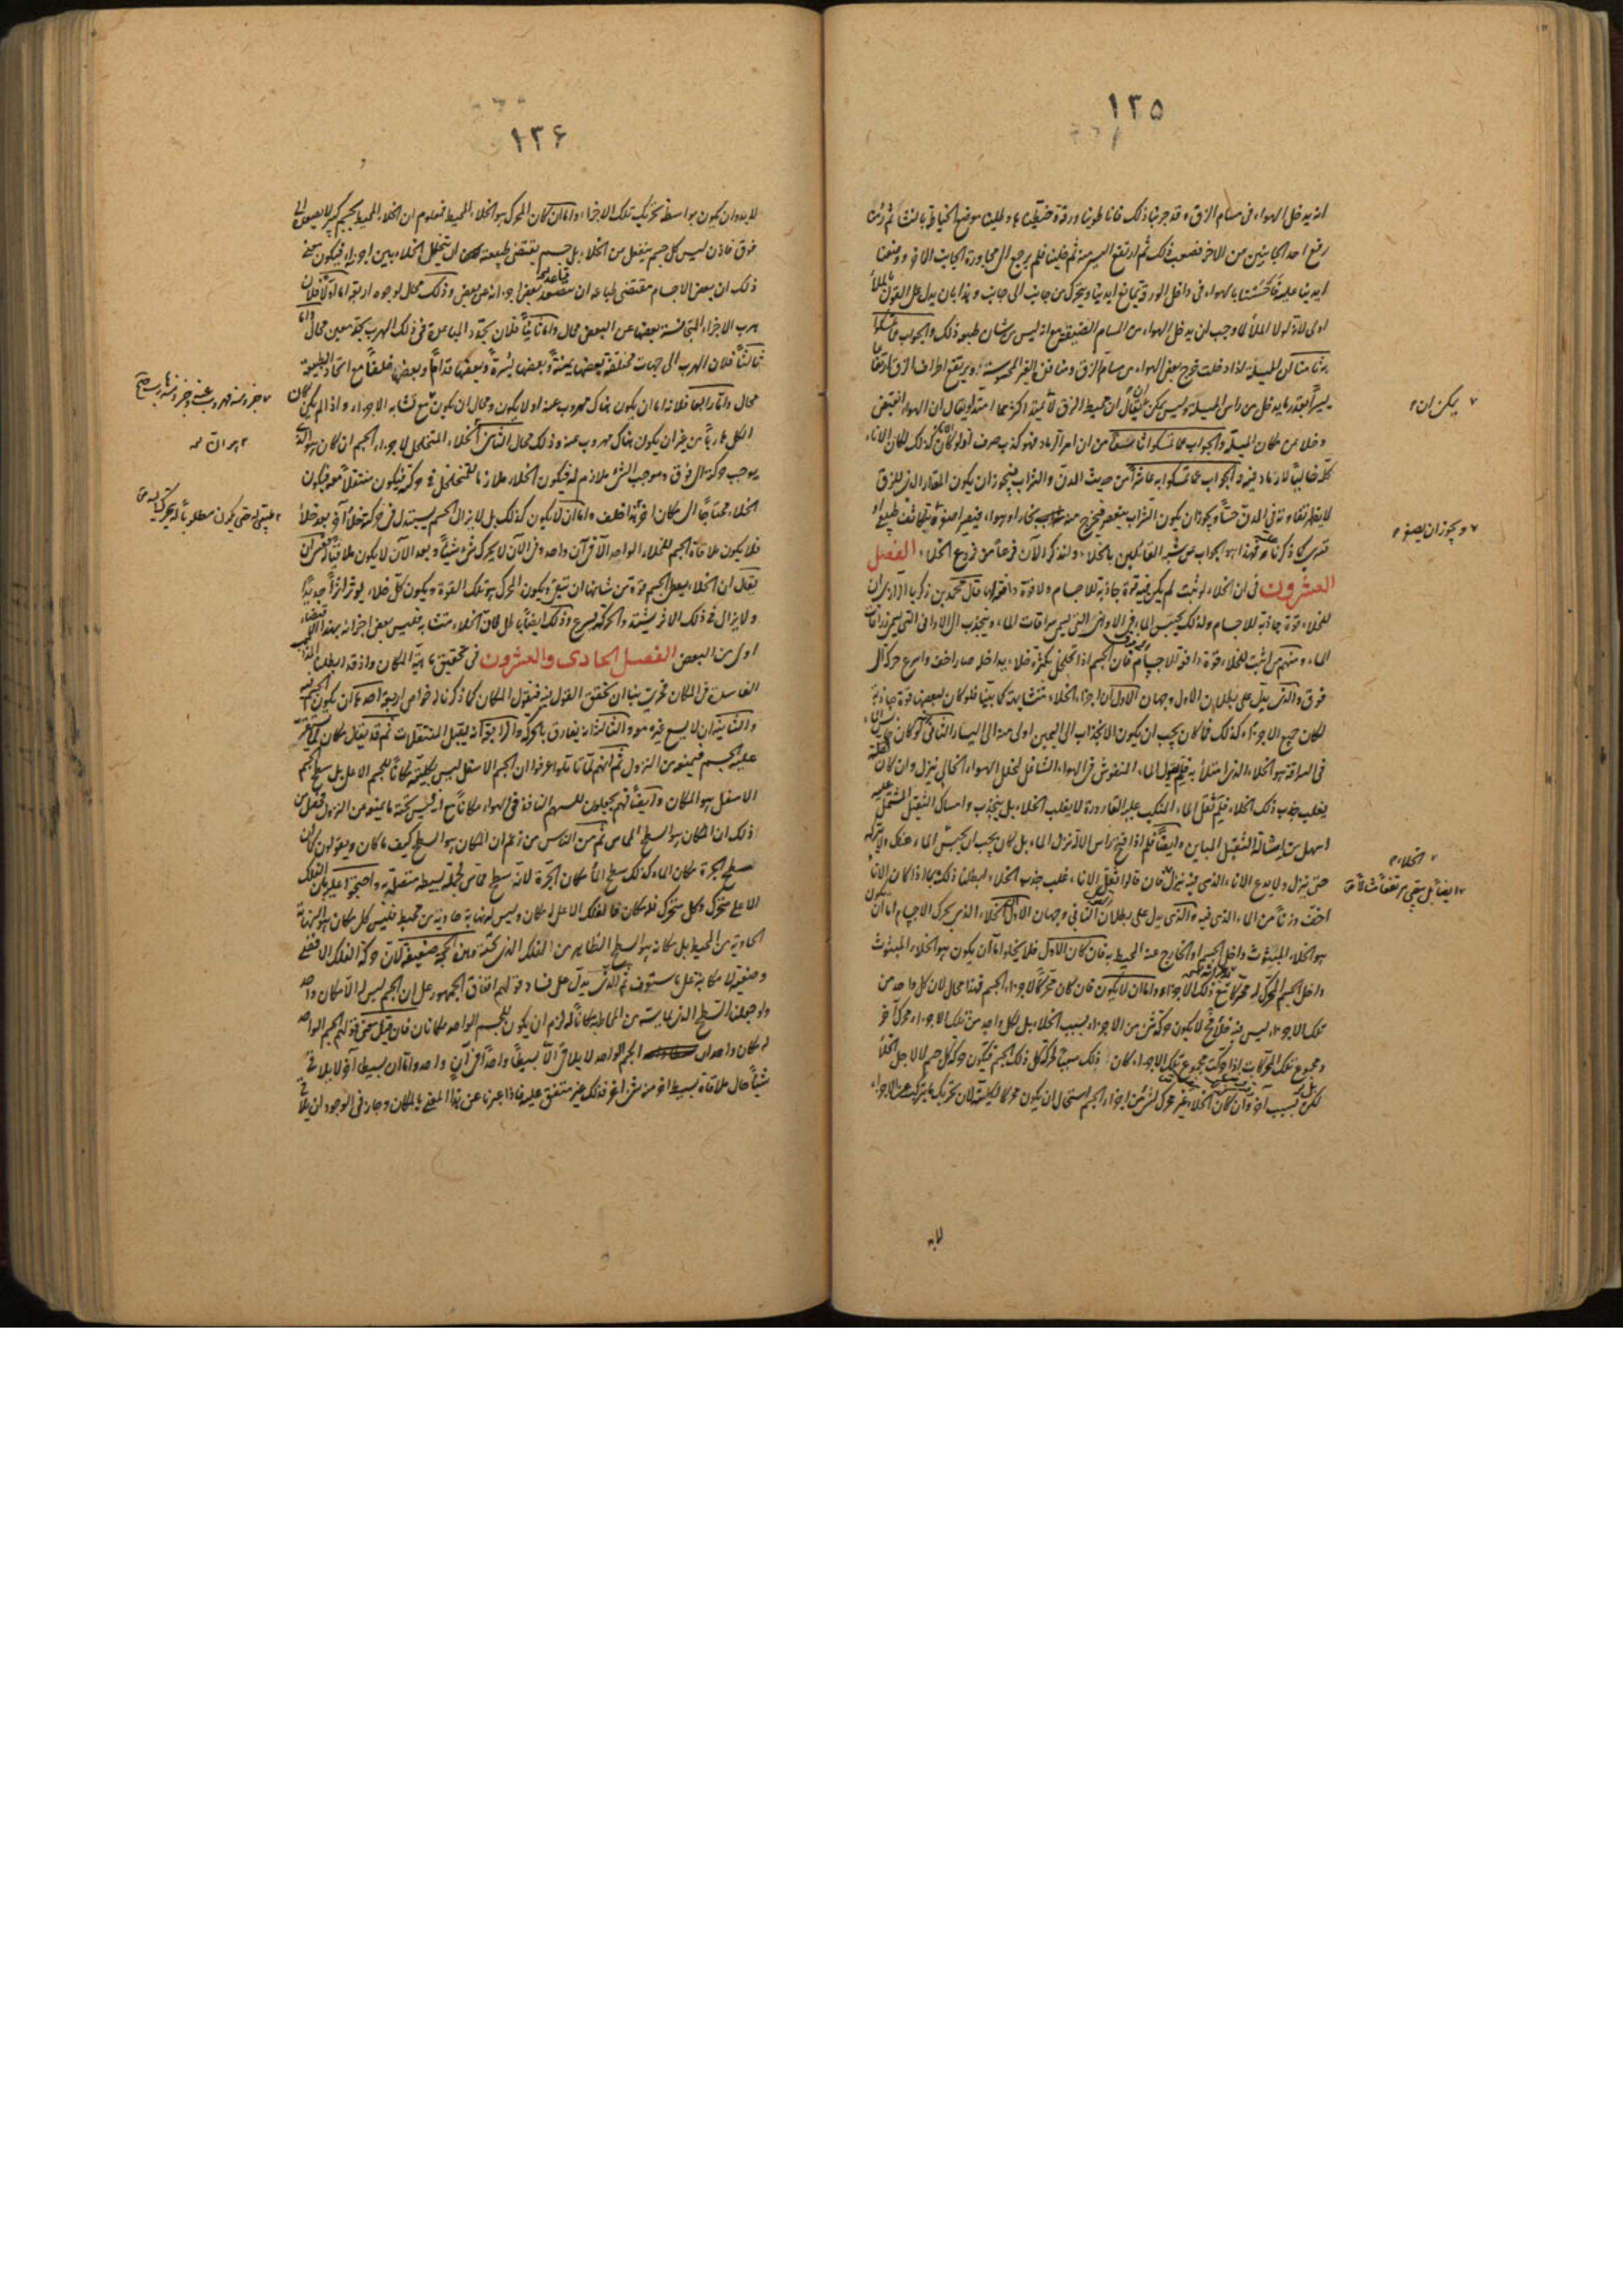 ١٣٥
انه يدخل الهواء فى مسام الزق وقد جربنا ذلك فانا طوينا ورقة
رفع احد الجانبين من الآخر فصوب ذلك ثم ارتفع اليسير منه ثم خلينا فلم يرجع الى مجاورة الجانب الآخر ووضعنا
ايدينا عليه فاحسسنا بالهواء فى داخل الورق يمانع ايدينا ويتحرك من جانب الى جانب وهذا بان يدل على القول بالملأ
اولى لانه لولا الملأ لا وجب ان يدخل الهواء من المسام الضيقة مع انه ليس من شان طبعه ذلك والجواب
ان المسلة اذا دخلت خرج بعض الهواء من مسام الزق ومنافذ الغير المحسوسة او يرتفع اطراف الزق ارتفاعا
يسيرا بقدر ما يدخل من راس المسلة وليس يمكن ان يقال ان محيط الزق لا يمتد اكثر مما امتد او يقال ان الهواء انقبض
وخلا عن مكان المسلة والجواب عما تمسكوا به من ان امر الرماد فهو كذب صرف لو كان كذلك لكان الاناء
كله خاليا لا رماد فيه والجواب عما تمسكوا به عاشرا من حديث الدن والشراب فيجوز ان يكون المقدار الذى للزق
لا يظهر تفاوته فى الدن حسا ويجوز ان يكون الشراب ينعصر فيخرج منه بخار او هواء فيصير اصغر
كما ذكرنا فهذا هو الجواب عن شبه القائلين بالخلاء ولنذكر الآن فرعا من فروع الخلاء الفصل
العشرون فى ان الخلاء لو ثبت لم يكن فيه قوة جاذبة للاجسام ولا قوة دافعة لها قال محمد بن زكريا الرازى ان
للخلاء قوة جاذبة للاجسام ولذلك يحتبس الماء فى الاوانى التى يسمى سراقات الماء وينجذب الى الاوانى التى يسمى زراقات
الماء ومنهم من اثبت للخلاء قوة دافعة للاجسام فان الجسم اذا تخلخل بكثرة خلاء يداخله صار اخف واسرع حركة الى
فوق والذى يدل على بطلان الاول وجهان الاول ان اجزاء الخلاء متشابهة كما بينا فلو كان لبعضها قوة جاذبة
لكان جميع الاجزاء كذلك فما كان يجب ان يكون الانجذاب الى اليمين اولى منه الى اليسار الثانى لو كان
فى السراقة هو الخلاء الذى امتلأ به الماء المنفوش فى الهواء الشاغل لخلل الهواء الخالى ينزل وان كان
يغلب جذب ذلك الخلاء فلم ثقل الماء المنكب عليه القارورة لا يغلب الخلاء بل ينجذب وامساك الثقيل المشتمل عليه
اسهل من اشالة الثقيل المباين وايضا فلم اذا فتح راس الآلة نزل الماء بل كان يجب ان يحبس الماء هناك ولا يتركه
حتى ينزل ولا يدع الاناء الذى فيه ينزل فان قالوا ثقل الاناء غلب جذب الخلاء ابطلنا ذلك بما اذا كان الاناء
اخف وزنا من الماء الذى فيه والذى يدل على بطلان الثانى وجهان الاول الخلاء الذى يحرك الاجسام اما ان يكون
هو الخلاء المبثوث داخل الجسم او الخارج عنه المحيط به فان كان الاول فلا يخلو اما ان يكون هو الخلاء المبثوث
داخل الجسم المحرك له محركا لتلك الاجزاء واما ان لا يكون فان كان محركا لاجزاء الجسم فهذا محال لان كل واحد من
تلك الاجزاء ليس فيه خلاء فح لا يكون حركة شئ من الاجزاء بسبب الخلاء بل لكل واحد من تلك الاجزاء محرك آخر
ومجموع تلك المحركات اذا حركت مجموع تلك الاجزاء كان ذلك سببا لحركة كل ذلك الجسم فيكون حركة كل جسم لا لاجل الخلاء
لكن بل بسبب آخر وان كان الخلاء غير محرك لشئ من اجزاء الجسم استحال ان يكون محركا لكليته لان تحريك ما يتركب عن الاجزاء
لابد
يمكن ان
ويجوز ان يصغر
الخلاء
١٣۶
لابد وان يكون بواسطة تحريك تلك الاجزاء واما ان كان المحرك هو الخلاء المحيط فمعلوم ان الخلاء المحيط بجسم كبير لا يصعده الى
فوق فاذن ليس كل جسم ينفعل من الخلاء بل جسم يقتضى طبيعته ان يتخلل الخلاء بين اجزائه فيكون معنى
ذلك ان بعض الاجسام مقتضى طباعه ان بعض اجزائه عن بعض وذلك محال لوجوه اربعة اما اولا فلان
هرب الاجزاء المتجانسة بعضها عن البعض محال واما ثانيا فلان تحدد المباعدة فى ذلك الهرب بحد معين محال واما
ثالثا فلان الهرب الى جهات مختلفة بعضها يمنة وبعضها يسرة وبعضها قداما وبعضها خلفا مع اتحاد الطبيعة
محال واما رابعا فلانه اما ان يكون هناك مهروب عنه او لا يكون ومحال ان يكون مع تشابه الاجزاء واذا لم يكن كان
الكل هاربا من غير ان يكون هناك مهروب عنه وذلك محال الثانى الخلاء المتخلخل لاجزاء الجسم ان كان هو الذى
يوجب حركة الى فوق وموجب الشئ ملازم له فيكون الخلاء ملازما للمتخلخل فى حركته فيكون منتقلا معه فيكون
الخلاء محتاجا الى مكان آخر هذا خلف واما ان لا يكون كذلك بل لا يزال الجسم يستبدل فى حركته خلاء آخر بعد خلاء
فلا يكون ملاقاة الجسم للخلاء الواحد الا فى آن واحد وفى الآن لا يحرك شئ شيئا وبعد الآن لا يكون ملاقيا
يقال ان الخلاء يعطى الجسم قوة من شانها ان تبقى ويكون المحرك هو تلك القوة ويكون كل خلاء يوثر اثرا جديدا
ولا يزال فى ذلك الاثر يشتد والحركة تسرع وذلك ايضا باطل فان الخلاء متشابه فليس بعض اجزائه بهذا الاقتضاء
اولى من البعض الفصل الحادى والعشرون فى تحقيق ماهية المكان واذ قد ابطلنا المذاهب
الفاسدة فى المكان فحرى بنا ان نحقق القول فيه فنقول المكان كما ذكرنا له خواص اربعة احدها ان يكون الجسم فيه
والثانية ان لا يسع غيره معه والثالثة ان يفارق بالحركة والرابعة انه يقبل المنتقلات ثم قد يقال مكان لما يستقر
عليه الجسم فيمنعه من النزول ثم انهم لما تأملوا عرفوا ان الجسم الاسفل ليس بكليته مكانا للجسم الاعلى بل سطح الجسم
الاسفل هو المكان وايضا فهم يجعلون للسهم النافذ فى الهواء مكانا مع انه ليس تحته ما يمنعه من النزول فحصل من
ذلك ان المكان هو السطح المماس ثم من الناس من زعم ان المكان هو السطح كيف ما كان ويقولون كما ان
سطح الجرة مكان الماء كذلك سطح الماء مكان الجرة لانه سطح مماس لجملة بسيطه متصلة به واحتجوا عليه بان الفلك
الاعلى متحرك وكل متحرك فله مكان فالفلك الاعلى له مكان وليس له نهاية حاوية من محيط فليس كل مكان هو النهاية
الحاوية من المحيط بل مكانه هو السطح الظاهر من الفلك الذى تحته وهذه الحجة ضعيفة لان حركة الفلك الاقصى
وضعية لا مكانية على ما ستعرف ثم الذى يدل على فساد قولهم اتفاق الجمهور على ان الجسم ليس له الا مكان واحد
ولو جعلنا السطح الذى يماسه من المحاط به مكانا له لزم ان يكون للجسم الواحد مكانان فان قيل معنى قولهم الجسم الواحد
له مكان واحد ان الجسم الواحد لا يلاقى الا بسيطا واحدا فى آن واحد واما ان بسيطا آخر لا يلاقى
شيئا حال ملاقاة بسيط آخر من شئ آخر فذلك غير متفق عليه فاذا عبرنا عن هذا المعنى بالمكان وجاز فى الوجود ان يلاقى